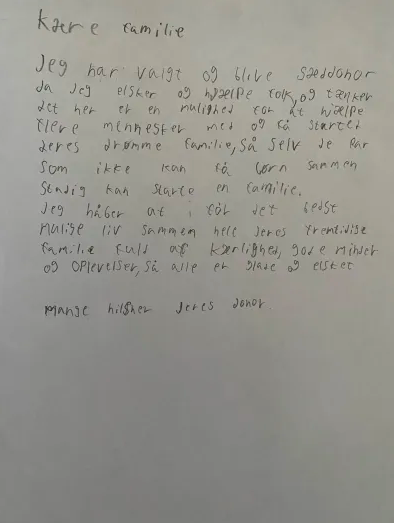 Kære familie
Jeg har valgt og blive sæddonor
da jeg elsker og hjælpe folk, og tænker
det her er en mulighed for at hjælpe
flere mennesker med og få startet
deres drømme familie, så selv de par
som ikke kan få børn sammen
stadig kan starte en familie.
Jeg håber at i får det bedst
mulige liv sammen hele jeres fremtidige
familie fuld af kærlighed, gode minder
og oplevelser, så alle er glade og elsket
mange hilsner jeres donor